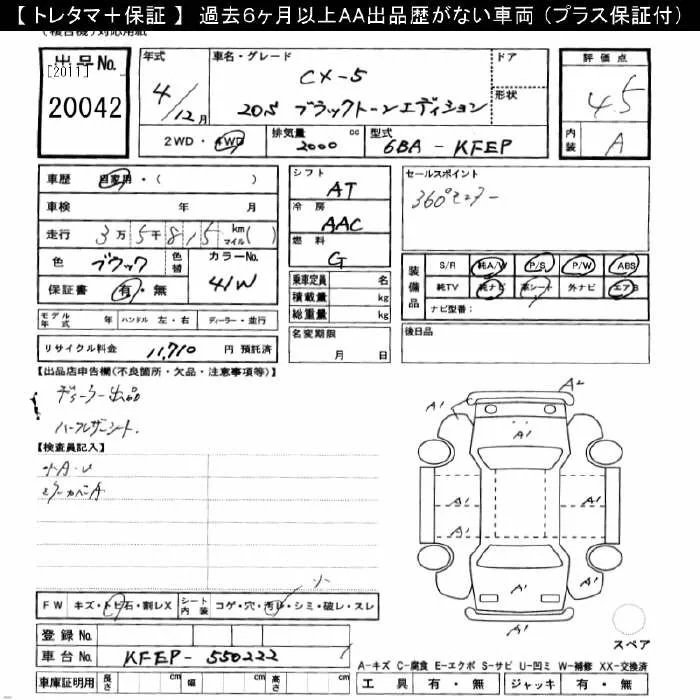 【 トレタマ＋保証 】 過去６ヶ月以上AA出品歴がない車両（プラス保証付）
出品No.
[2011]
20042
年式
4/12月
車名・グレード
CX-5
20S ブラックトーンエディション
ドア
形状
評価点
4.5
内装 A
2WD・4WD
排気量 2000 cc
型式 6BA - KFEP
車歴 自家用・( )
車検 年 月
走行 3万5千815 km マイル( )
色 ブラック 色替
カラーNo. 41W
保証書 有・無
シフト
AT
冷房
AAC
燃料
G
乗車定員 名
積載量 kg
総重量 kg
セールスポイント
360°モニター
装備品
S/R 純A/W P/S P/W ABS
純TV 純ナビ 革シート 外ナビ エアB
ナビ型番：
モデル年式 年 ハンドル 左・右 ディーラー・並行
リサイクル料金 11,710 円 預託済
名変期限
月 日
後日品
【出品店申告欄(不良箇所・欠品・注意事項等)】
ディーラー出品
ハーフレザーシート.
【検査員記入】
小A・U
ミラーカバーA
A2
A1
A1
A1
A1
A1
A1
A1
A1
A1
スペア
小
FW キズ・トビ石・割レX
シート内装 コゲ・穴・汚レ・シミ・破レ・スレ
登録No.
車台No. KFEP - 550222
車庫証明用 長さ cm 幅 cm 高さ cm
A-キズ C-腐食 E-エクボ S-サビ U-凹ミ W-補修 XX-交換済
工具 有・無 ジャッキ 有・無